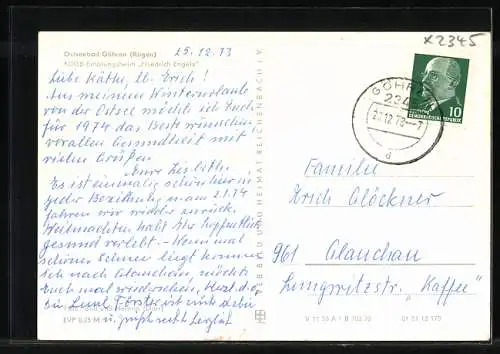 x2345
Ostseebad Göhren (Rügen)
FDGB-Erholungsheim „Friedrich Engels“
25.12.73
Liebe Käthe, lb. Erich!
Aus meinem Winterurlaub
von der Ostsee möcht ich Euch
für 1974 das Beste wünschen
vor allem Gesundheit mit
vielen Grüßen.
Eure Lisbeth
Es ist einmalig schön hier in
jeder Beziehung u. am 2.1.74
fahren wir wieder zurück.
Weihnachten habt Ihr hoffentlich
gesund verlebt. – Wenn mal
schöner Schnee liegt komme
ich nach Glauchau, möchte
Euch mal wiedersehen,
Foto:
EVP 0,25 M
u. grüßt recht herzlich
BILD UND HEIMAT REICHENBACH i. V.
V 11 50 A 1 B 702 70
01 01 12 175
GÖHREN
234
27.12.73–7
d
10
DEUTSCHE
DEMOKRATISCHE REPUBLIK
Familie
Erich Glöckner
961 Glauchau
Lungwitzstr. „Kaffee“